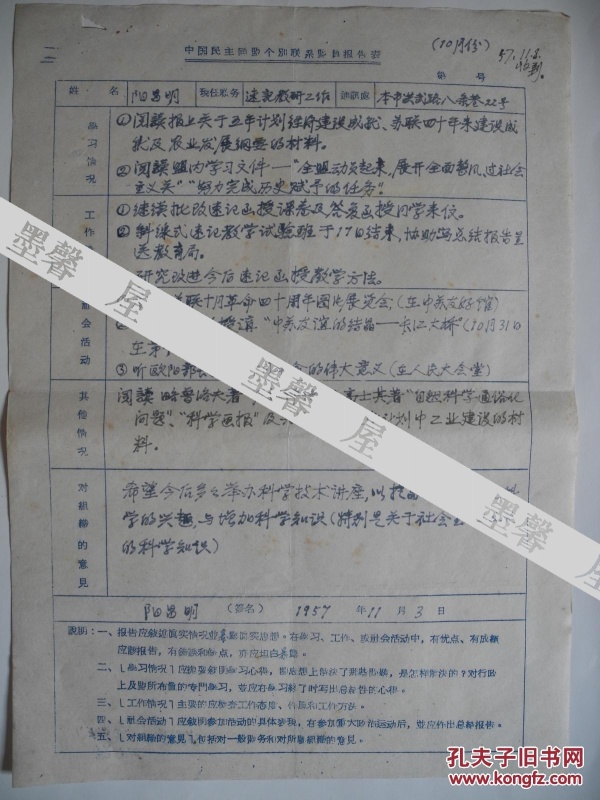 中国民主同盟个别联系盟员报告表
(10月份)
57.11.5.
收到.
第 号
姓 名 阳昌明 现任职务 速记教研工作 通讯处 本市洪武路八条巷22号
学习情况
①阅读报上关于五年计划经济建设成就、苏联四十年来建设成
就及农业发展纲要的材料。
②阅读盟内学习文件—"全盟动员起来,展开全面整风,过社会
主义关""努力完成历史赋予的任务"。
工作
①继续批改速记函授课卷及答复函授同学来信。
②斜线式速记教学试验班于17日结束,协助写总结报告呈
送教育局。
研究改进今后速记函授教学方法。
会活动
联十月革命四十周年图片展览会;(在中苏友好馆)
"中苏友谊的结晶——长江大桥"(10月31日
在
③听欧阳 的伟大意义(在人民大会堂)
其他情况
阅读 略普洛夫著 高士其著"自然科学通俗化
问题"、"科学画报"及 计划中工业建设的材
料。
对组织的意见
希望今后多多举办科学技术讲座,以提
学的兴趣与增加科学知识(特别是关于社会主
的科学知识)
阳昌明 (签名) 1957 年 11 月 3 日
说明:一、报告应叙述真实情况並暴露真实思想。在学习、工作、或社会活动中,有优点、有成绩
应该报告,有错误和缺点,亦应坦白暴露。
二、〔学习情况〕应扼要叙明学习心得,即思想上解决了那些问题,是怎样解决的?对行政
上及盟所布置的专门学习,並应在学习终了时写出总结性的心得。
三、〔工作情况〕主要的应检查工作态度、作风和工作方法。
四、〔社会活动〕应叙明参加活动的具体事项,在参加重大政治运动后,並应作出总结报告。
五、〔对组织的意见〕包括对一般盟务和对所属组织的意见。
墨馨屋
墨馨屋
墨馨屋
孔夫子旧书网
www.kongfz.com